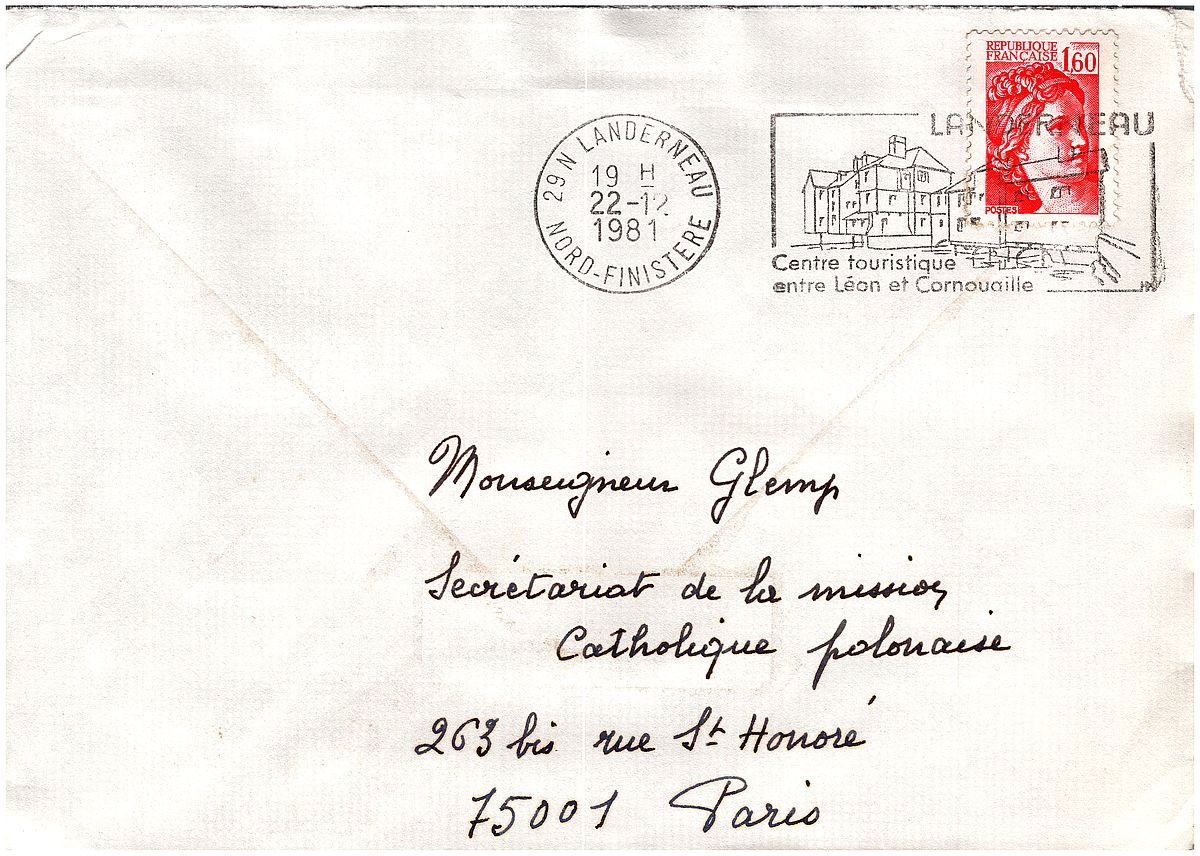 RÉPUBLIQUE
FRANÇAISE 1,60
POSTES
29 N LANDERNEAU
19 H
22-12
1981
NORD-FINISTERE
LANDERNEAU
Centre touristique
entre Léon et Cornouaille
Monseigneur Glemp
Secrétariat de la mission
Catholique polonaise
263 bis rue St Honoré
75001 Paris